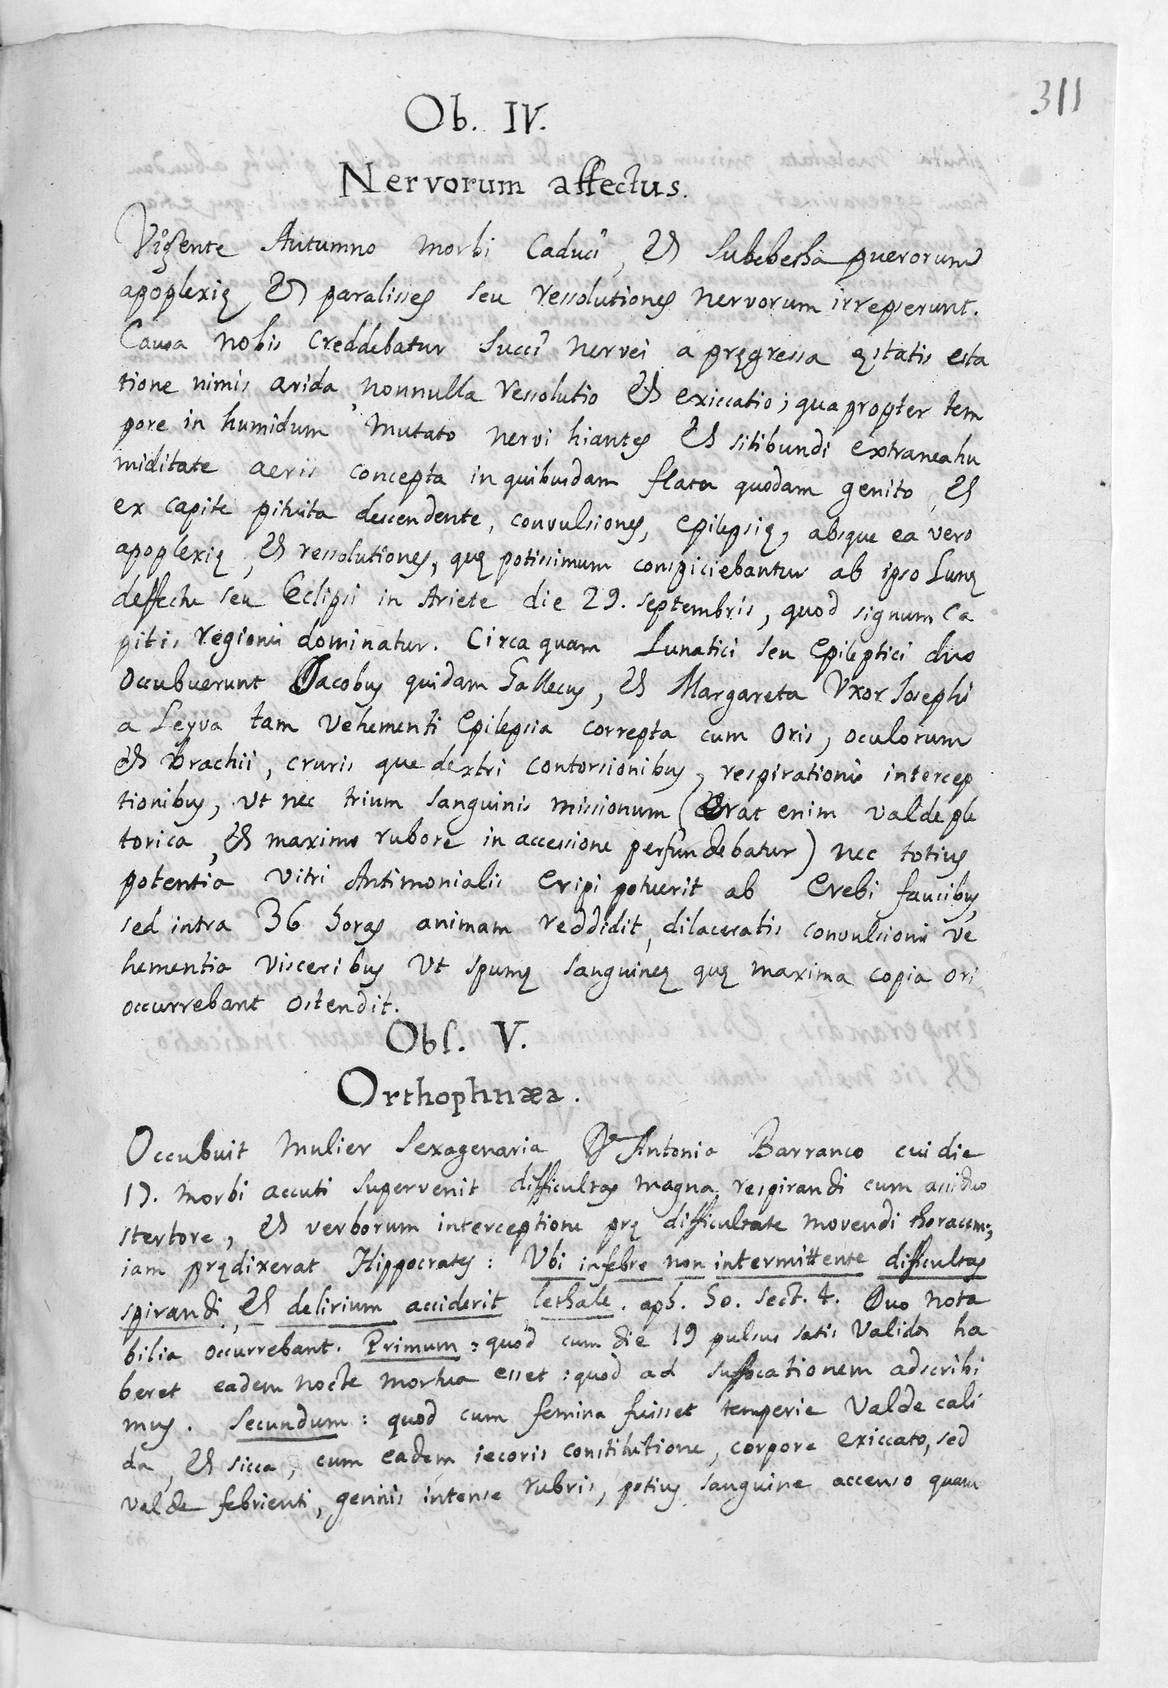 311
Ob. IV.
Nervorum affectus.
Vigente Autumno morbi Caduci, et Subebethâ puerorum
apoplexię, et paralisses seu ressolutiones nervorum irrepserunt.
Causa nobis creddebatur succi nervei a pręgressa ęstatis esta
tione nimis arida, nonnulla ressolutio et exiccatio; qua propter tem
pore in humidum mutato nervi hiantes et sitibundi extranea hu
miditate aeris concepta in quibusdam flatu quodam genito, et
ex capite pituita descendente, convulsiones, epilepsię, absque ea vero
apoplexię, et ressolutiones, quę potissimum conspiciebantur ab ipso Lunę
deffectu seu Eclipsi in Ariete die 29. septembris, quod signum Ca
pitis regioni dominatur. Circa quam Lunatici seu Epileptici duo
Occubuerunt Jacobus quidam Gallecus, et Margareta Vxor Josephi
a Leyva tam vehementi Epilepsia correpta cum Oris, oculorum
et brachii, cruris que dextri contorsionibus, respirationis intercep
tionibus, Vt nec trium sanguinis missionum (Erat enim valde ple
torica, et maximo rubore in accessione perfundebatur) nec totius
potentia Vitri Antimonialis eripi potuerit ab Erebi faucibus,
sed intra 36 horas animam reddidit, dilaceratis convulsionis ve
hementia Visceribus Vt spumę sanguineę quę maxima copia ori
occurrebant ostendit.
Obs. V.
Orthophnæa.
Occubuit Mulier Sexagenaria Dª Antonia Barranco cui die
17. morbi accuti supervenit difficultas magna respirandi cum assiduo
stertore, et verborum interceptione prę difficultate movendi thoracem;
iam prędixerat Hippocrates: Vbi in febre non intermittente difficultas
spirandi, et delirium acciderit lethale. aph. 50. sect. 4. Duo nota
bilia occurrebant. Primum: quod cum die 19 pulsus satis validos ha
beret eadem nocte mortua esset: quod ad suffocationem adscribi
mus. Secundum: quod cum femina fuisset temperie valde cali
da, et sicca, cum eadem iecoris constitutione, corpore exiccato, sed
valde febrienti, genis intense rubris, potius sanguine accenso quam